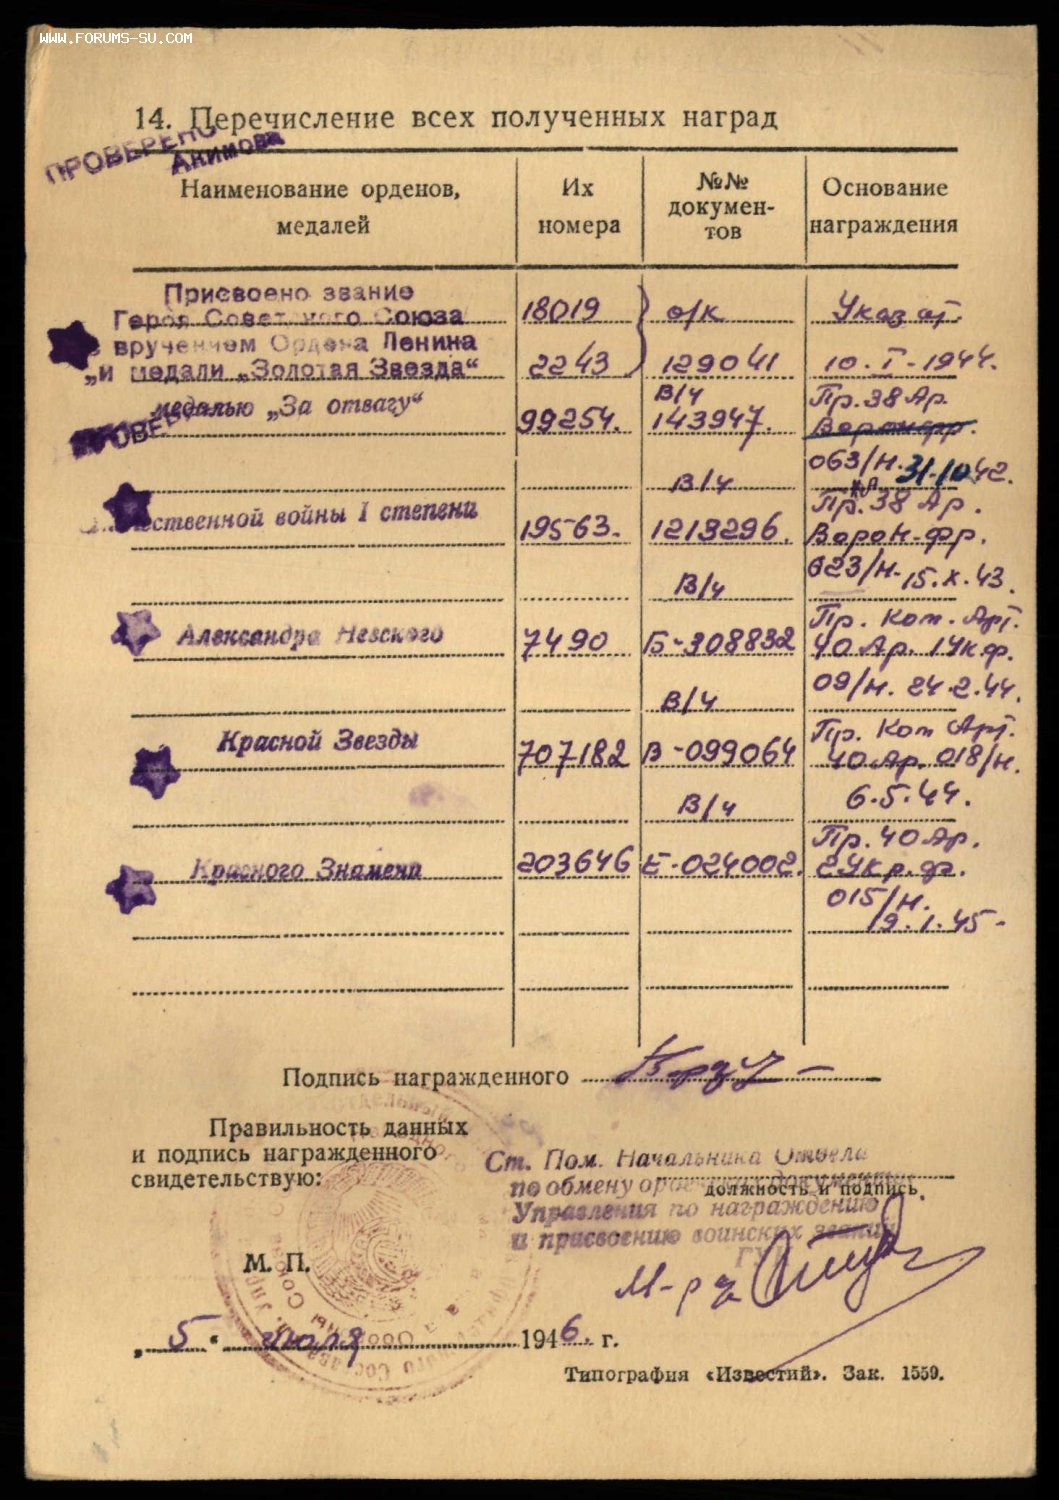 WWW.FORUMS-SU.COM
14. Перечисление всех полученных наград
ПРОВЕРЕНО
Акимова
Наименование орденов, медалей
Их номера
№№ докумен-тов
Основание награждения
Присвоено звание
Героя Советского Союза 18019 о/к Указ от
с вручением Ордена Ленина
„и медали „Золотая Звезда“ 2243 129041 10.I-1944.
в/ч Пр. 38 Ар.
медалью „За отвагу“ 99254. 143947. Воронфр.
ПРОВЕРЕНО
063/н. 31.10.42.
в/ч Пр. 38 Ар.
Отечественной войны I степени 19563. 1213296. Ворон-фр.
623/н. 15.X.43.
в/ч Пр. Ком. Арт.
Александра Невского 7490 Б-308832 40 Ар. 1Укф.
09/н. 24.2.44.
в/ч Пр. Ком Арт.
Красной Звезды 707182 В-099064 40 Ар. 018/н.
в/ч 6.5.44.
Пр. 40 Ар.
Красного Знамени 203646 Е-024002. 2 Укр. ф.
015/н.
19.1.45-
Подпись награжденного
Правильность данных
и подпись награжденного
свидетельствую:
Ст. Пом. Начальника Отдела
по обмену орденских документов
должность и подпись
Управления по награждению
и присвоению воинских званий
ГУК
М. П.
М-р
„5“ июля 1946. г.
Типография «Известий». Зак. 1559.